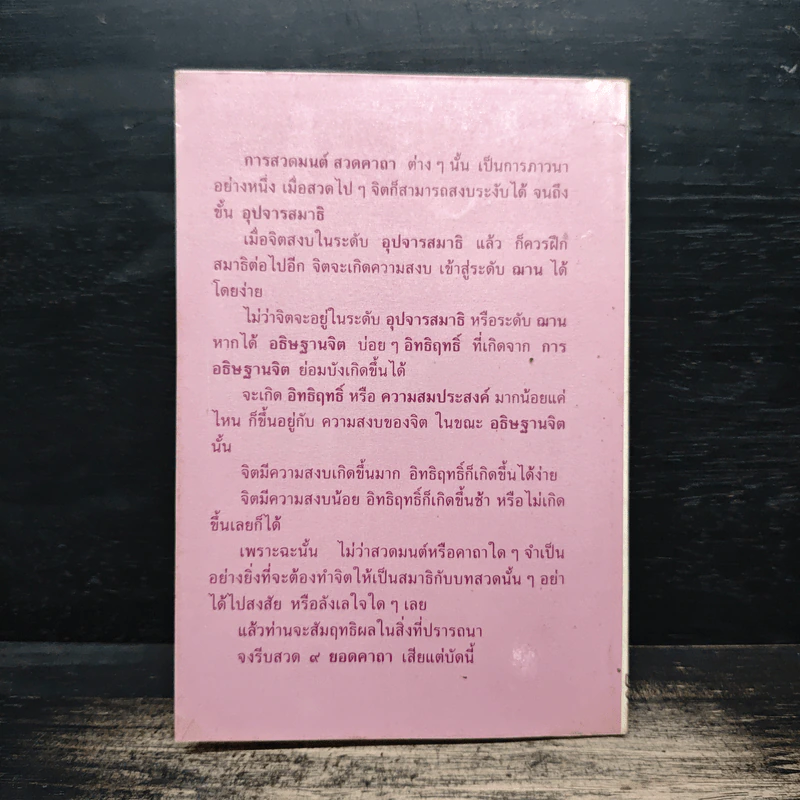 การสวดมนต์ สวดคาถา ต่าง ๆ นั้น เป็นการภาวนา
อย่างหนึ่ง เมื่อสวดไป ๆ จิตก็สามารถสงบระงับได้ จนถึง
ขั้น อุปจารสมาธิ
เมื่อจิตสงบในระดับ อุปจารสมาธิ แล้ว ก็ควรฝึก
สมาธิต่อไปอีก จิตจะเกิดความสงบ เข้าสู่ระดับ ฌาน ได้
โดยง่าย
ไม่ว่าจิตจะอยู่ในระดับ อุปจารสมาธิ หรือระดับ ฌาน
หากได้ อธิษฐานจิต บ่อย ๆ อิทธิฤทธิ์ ที่เกิดจาก การ
อธิษฐานจิต ย่อมบังเกิดขึ้นได้
จะเกิด อิทธิฤทธิ์ หรือ ความสมประสงค์ มากน้อยแค่
ไหน ก็ขึ้นอยู่กับ ความสงบของจิต ในขณะ อธิษฐานจิต
นั้น
จิตมีความสงบเกิดขึ้นมาก อิทธิฤทธิ์ก็เกิดขึ้นได้ง่าย
จิตมีความสงบน้อย อิทธิฤทธิ์ก็เกิดขึ้นช้า หรือไม่เกิด
ขึ้นเลยก็ได้
เพราะฉะนั้น ไม่ว่าสวดมนต์หรือคาถาใด ๆ จำเป็น
อย่างยิ่งที่จะต้องทำจิตให้เป็นสมาธิกับบทสวดนั้น ๆ อย่า
ได้ไปสงสัย หรือลังเลใจใด ๆ เลย
แล้วท่านจะสัมฤทธิผลในสิ่งที่ปรารถนา
จงรีบสวด ๙ ยอดคาถา เสียแต่บัดนี้